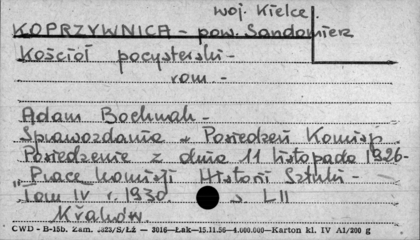 woj. Kielce
KOPRZYWNICA - pow. Sandomierz
Kościół pocysterski -
rom. -
Adam Bochnak -
Sprawozdania z Posiedzeń Komisji
Posiedzenie z dnia 11 listopada 1926 -
"Prace Komisji Historii Sztuki -
tom IV r. 1930. s. LII
Kraków.
CWD - B-15b. Zam. 323/S/Łż — 3016—Łak—15.11.56—4.000.000—Karton kl. IV A1/200 g